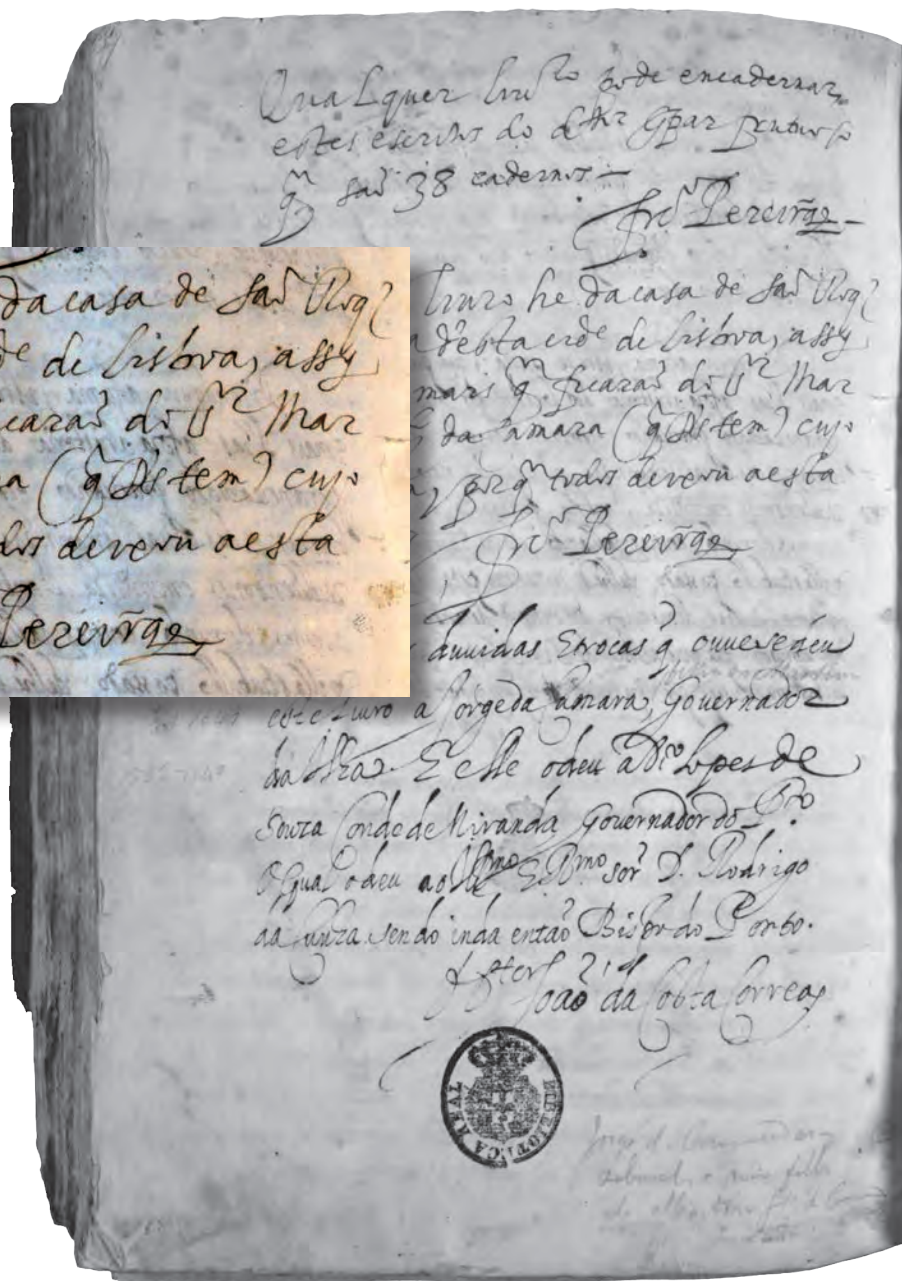 Qualquer livro pode encadernar
estes escritos do dor Gpar
q são 38 cadernos —
Frco Pereira
livro he da casa de são Roq
desta cide de Lisboa, assy
mais q ficarão do sr Mar
da Camara (q Ds tem) cujo
, porq todos deverū a esta
Frco Pereira
da casa de são Roq
de de Lisboa, assy
ficarão do sr Mar
a (q Ds tem) cujo
dos deverū a esta
Pereira
duvidas E trocas q ouve se deu
este Livro a Jorge da Camara, Governador
da Ilha E elle o deu a Dio Lopes de
Souza Conde de Miranda Governador do Pto
O qual o deu ao Illmo E Rmo sor D. Rodrigo
da Cunha sendo inda então Bispo do Porto.
João da Costa Correa
BIBLIOTECA REAL